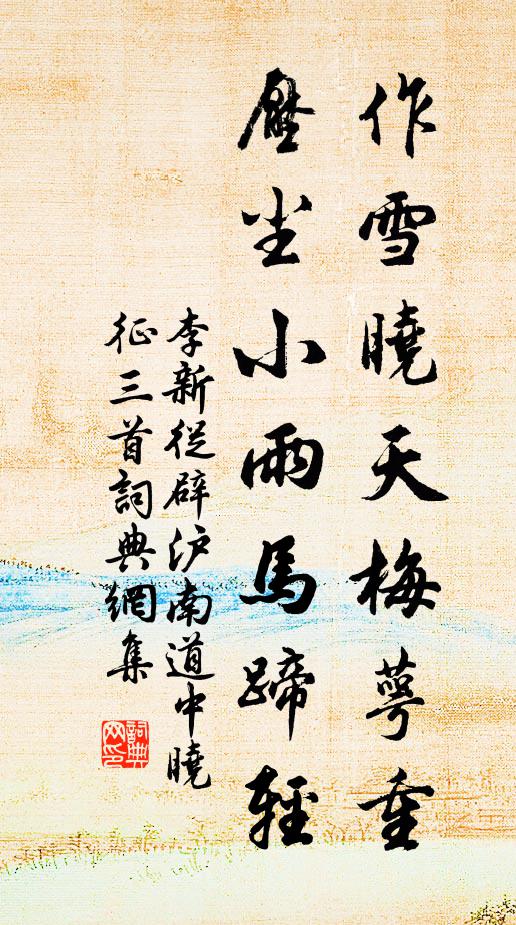 作雪曉天梅萼重
壓尘小雨馬蹄輕
李新從辟泸南道中曉
征三首詞典網集
詞典网印